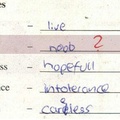 - live
- noob ?
- hopefull
- intolerance
- careless